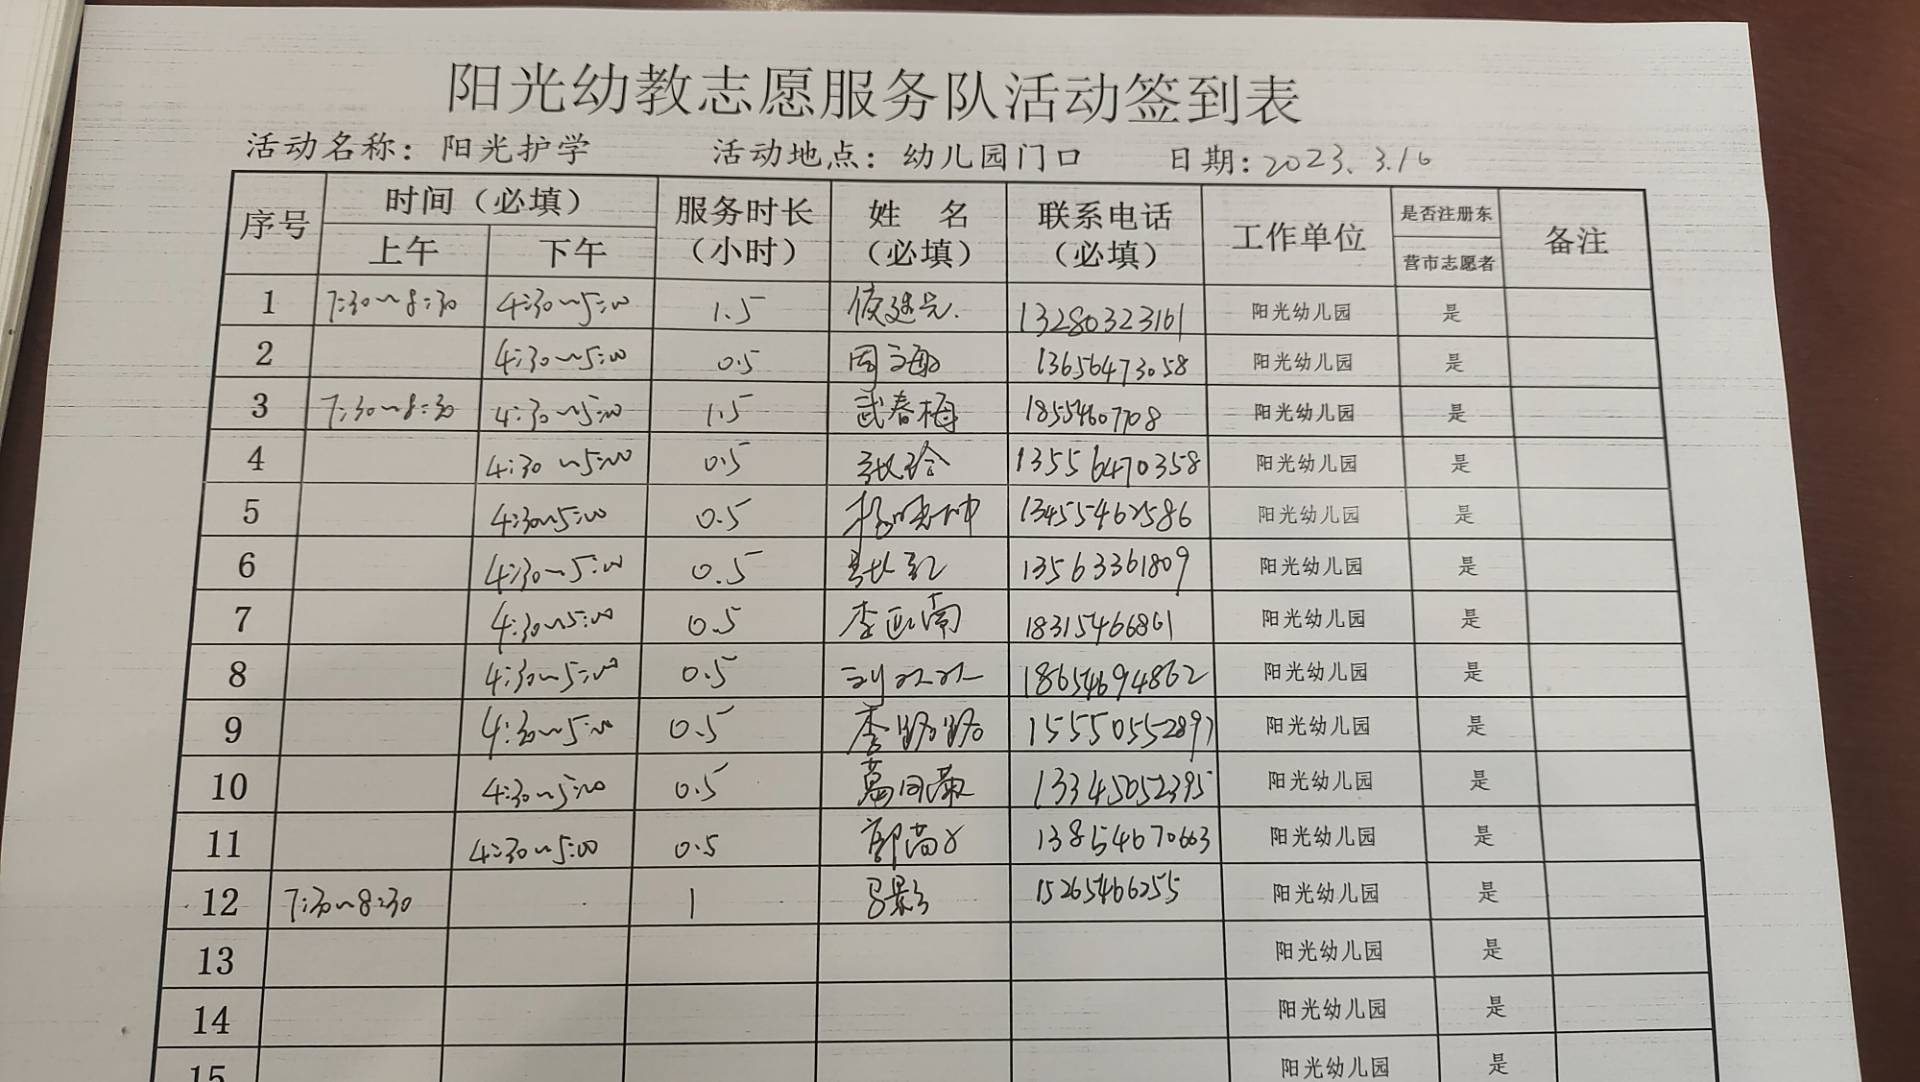 阳光幼教志愿服务队活动签到表
活动名称：阳光护学 活动地点：幼儿园门口 日期：2023.3.16
序号 时间（必填） 服务时长（小时） 姓 名（必填） 联系电话（必填） 工作单位 是否注册东营市志愿者 备注
上午 下午
1 7:30~8:30 4:30~5:00 1.5 13280323161 阳光幼儿园 是
2 4:30~5:00 0.5 周海 13656473058 阳光幼儿园 是
3 7:30~8:30 4:30~5:00 1.5 武春梅 18554607708 阳光幼儿园 是
4 4:30~5:00 0.5 张玲 13556470358 阳光幼儿园 是
5 4:30~5:00 0.5 杨 坤 13455462586 阳光幼儿园 是
6 4:30~5:00 0.5 张红 13563361809 阳光幼儿园 是
7 4:30~5:00 0.5 李亚南 18315466861 阳光幼儿园 是
8 4:30~5:00 0.5 刘双双 18654694862 阳光幼儿园 是
9 4:30~5:00 0.5 李璐璐 15550552897 阳光幼儿园 是
10 4:30~5:00 0.5 葛同菊 13345052395 阳光幼儿园 是
11 4:30~5:00 0.5 郭苗 13854670663 阳光幼儿园 是
12 7:30~8:30 1 吕影 15265466255 阳光幼儿园 是
13 阳光幼儿园 是
14 阳光幼儿园 是
15 阳光幼儿园 是